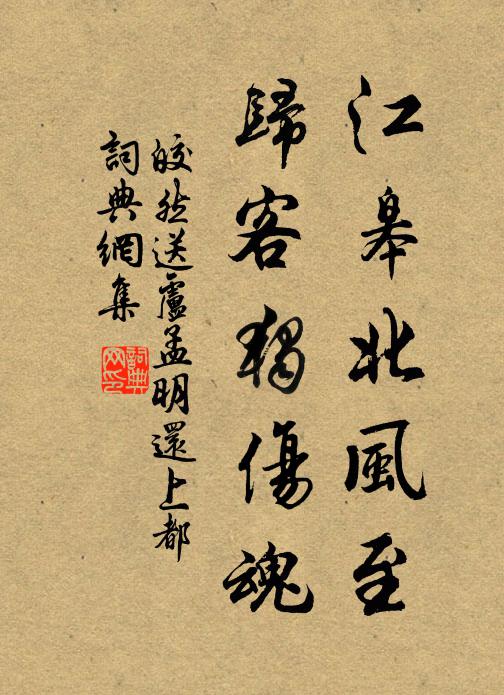 江皋北風至
歸客獨傷魂
皎然送盧孟明還上都
詞典網集
詞典
网印